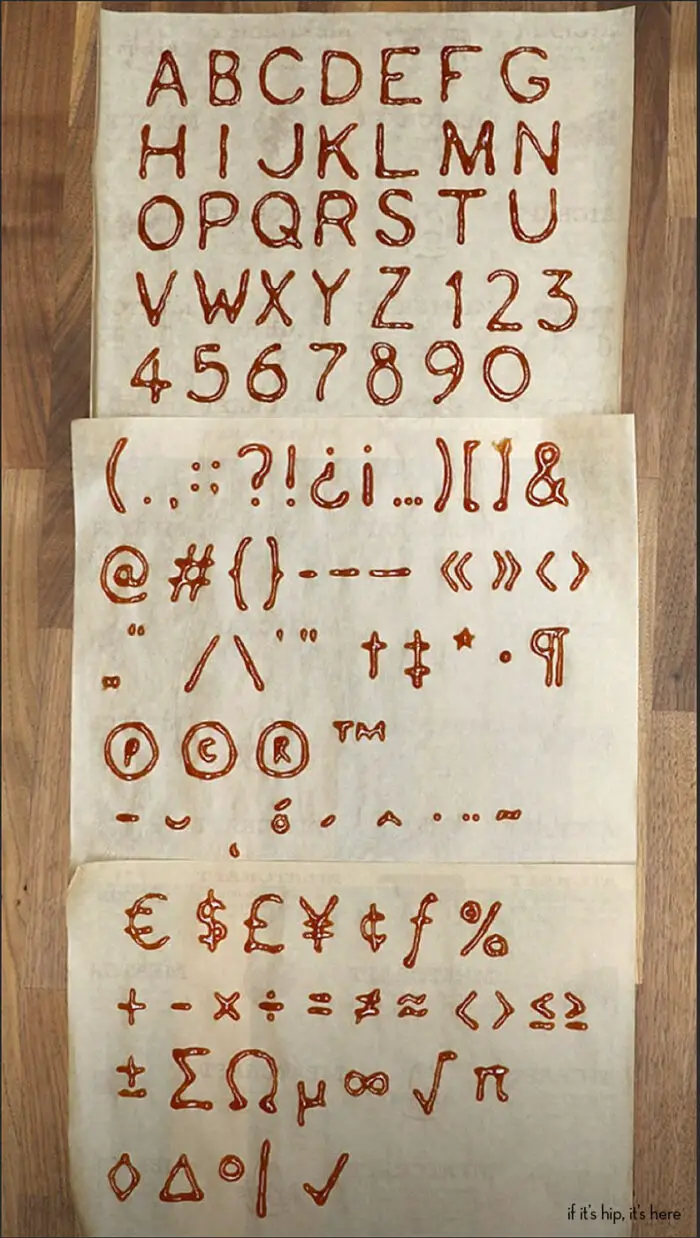 A B C D E F G
H I J K L M N
O P Q R S T U
V W X Y Z 1 2 3
4 5 6 7 8 9 0
( . , : ; ? ! ¿ ¡ … ) [ ] &
@ # { } - – — « » ‹ ›
„ “ / \ ' " † ‡ * · ¶
℗ © ® ™
¯ ˘ ¸ ő ´ ˆ ˙ ¨ ˜
€ $ £ ¥ ¢ ƒ %
+ − × ÷ = ≠ ≈ < > ≤ ≥
± Σ Ω µ ∞ √ π
◊ ∆ ° | ✓
if it's hip, it's here